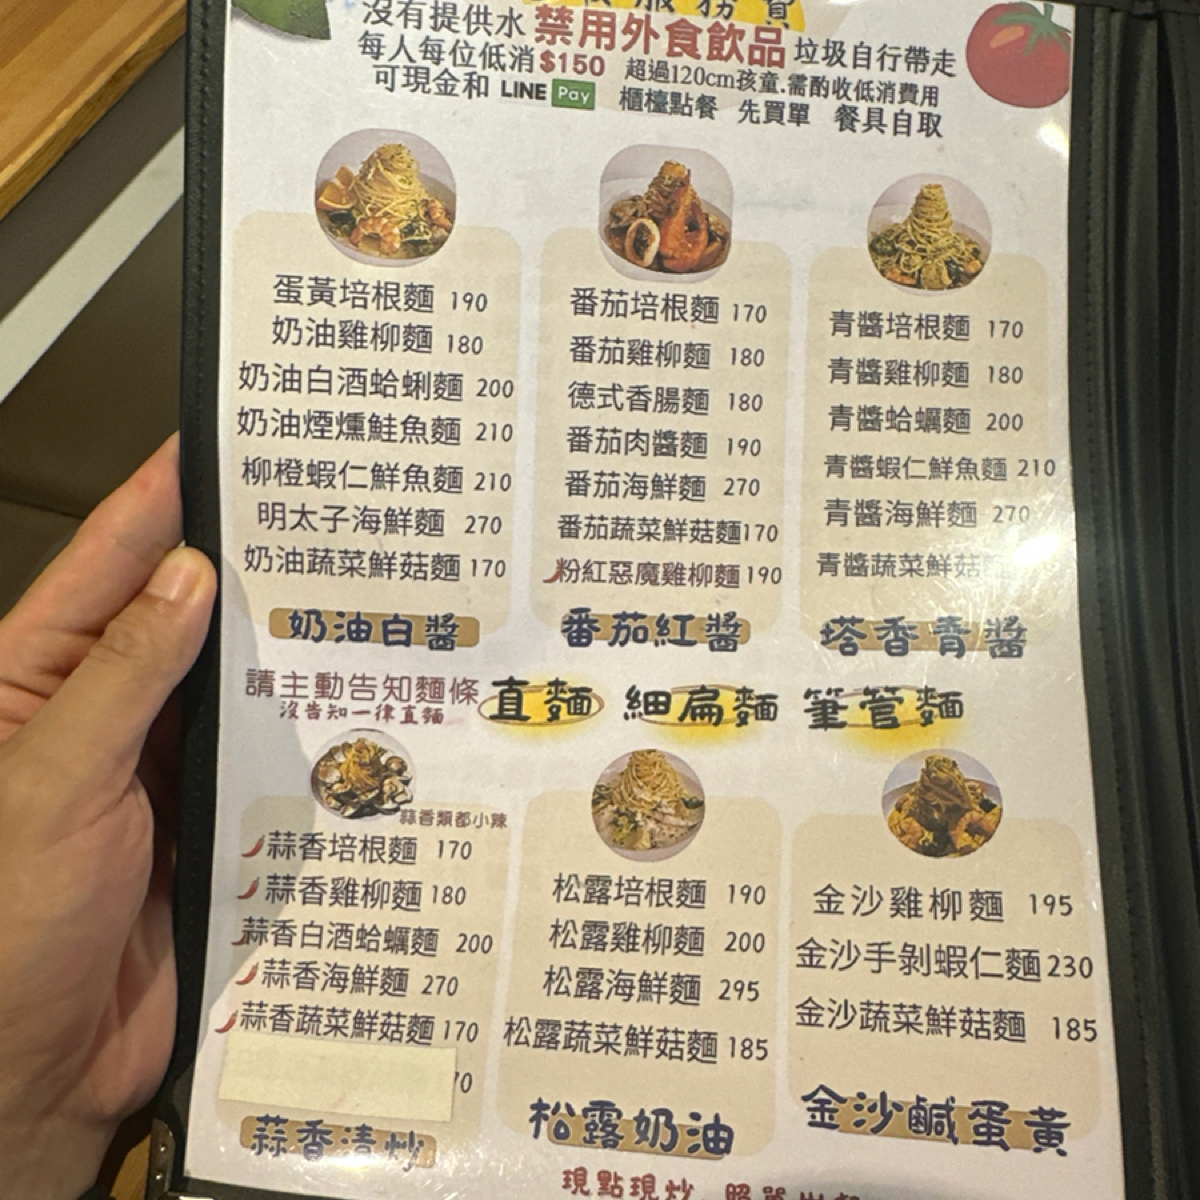 服務費
沒有提供水 禁用外食飲品 垃圾自行帶走
每人每位低消$150 超過120cm孩童.需酌收低消費用
可現金和 LINE Pay 櫃檯點餐 先買單 餐具自取
蛋黃培根麵 190
奶油雞柳麵 180
奶油白酒蛤蜊麵 200
奶油煙燻鮭魚麵 210
柳橙蝦仁鮮魚麵 210
明太子海鮮麵 270
奶油蔬菜鮮菇麵 170
奶油白醬
番茄培根麵 170
番茄雞柳麵 180
德式香腸麵 180
番茄肉醬麵 190
番茄海鮮麵 270
番茄蔬菜鮮菇麵170
粉紅惡魔雞柳麵190
番茄紅醬
青醬培根麵 170
青醬雞柳麵 180
青醬蛤蠣麵 200
青醬蝦仁鮮魚麵 210
青醬海鮮麵 270
青醬蔬菜鮮菇
塔香青醬
請主動告知麵條 直麵 細扁麵 筆管麵
沒告知一律直麵
蒜香類都小辣
蒜香培根麵 170
蒜香雞柳麵 180
蒜香白酒蛤蠣麵 200
蒜香海鮮麵 270
蒜香蔬菜鮮菇麵 170
70
蒜香清炒
松露培根麵 190
松露雞柳麵 200
松露海鮮麵 295
松露蔬菜鮮菇麵 185
松露奶油
金沙雞柳麵 195
金沙手剝蝦仁麵 230
金沙蔬菜鮮菇麵 185
金沙鹹蛋黃
現點現炒